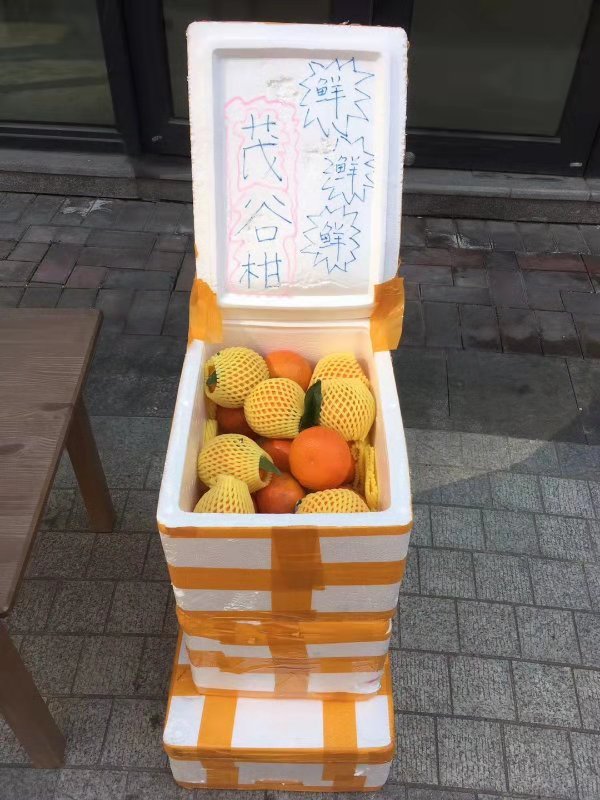 茂谷柑
鲜
鲜
鲜